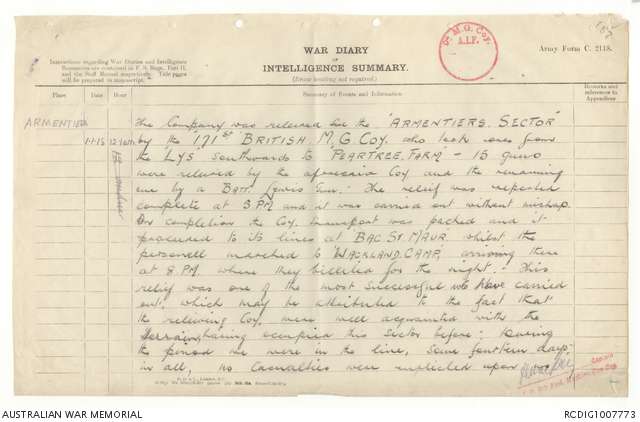 187
Instructions regarding War Diaries and Intelligence
Summaries are contained in F. S. Regs., Part II.
and the Staff Manual respectively. Title pages
will be prepared in manuscript.
WAR DIARY
OR
INTELLIGENCE SUMMARY.
(Erase heading not required)
M.G. Coy.
A.I.F.
Army Form C. 2118.
Place
Date
Hour
Summary of Events and Information
Remarks and
references to
Appendices
ARMENTIERS
1-1-18
The Company was relieved in the "ARMENTIERS SECTOR"
by the 171st BRITISH M.G. COY. who took over from
the "LYS" Southwards to "PEARTREE FARM" - 15 guns
were relieved by the aforesaid Coy and the remaining
one by a BATT. Lewis Gun. The relief was reported
complete at 3 PM and it was carried out without mishap.
On completion the Coy. transport was packed and it
proceeded to its lines at BAC ST. MAUR whilst the
personell marched to "WACKLAND CAMP" arriving there
at 8 P.M. where they billeted for the night. This
relief was one of the most successful we have carried
out, which may be attributed to the fact that
the relieving Coy. were well acquainted with the
terrain, having occupied this sector before; During
the period we were in the line, some fourteen days
in all, no casualties were inflicted upon us.
AUSTRALIAN WAR MEMORIAL
RCDIG1007773